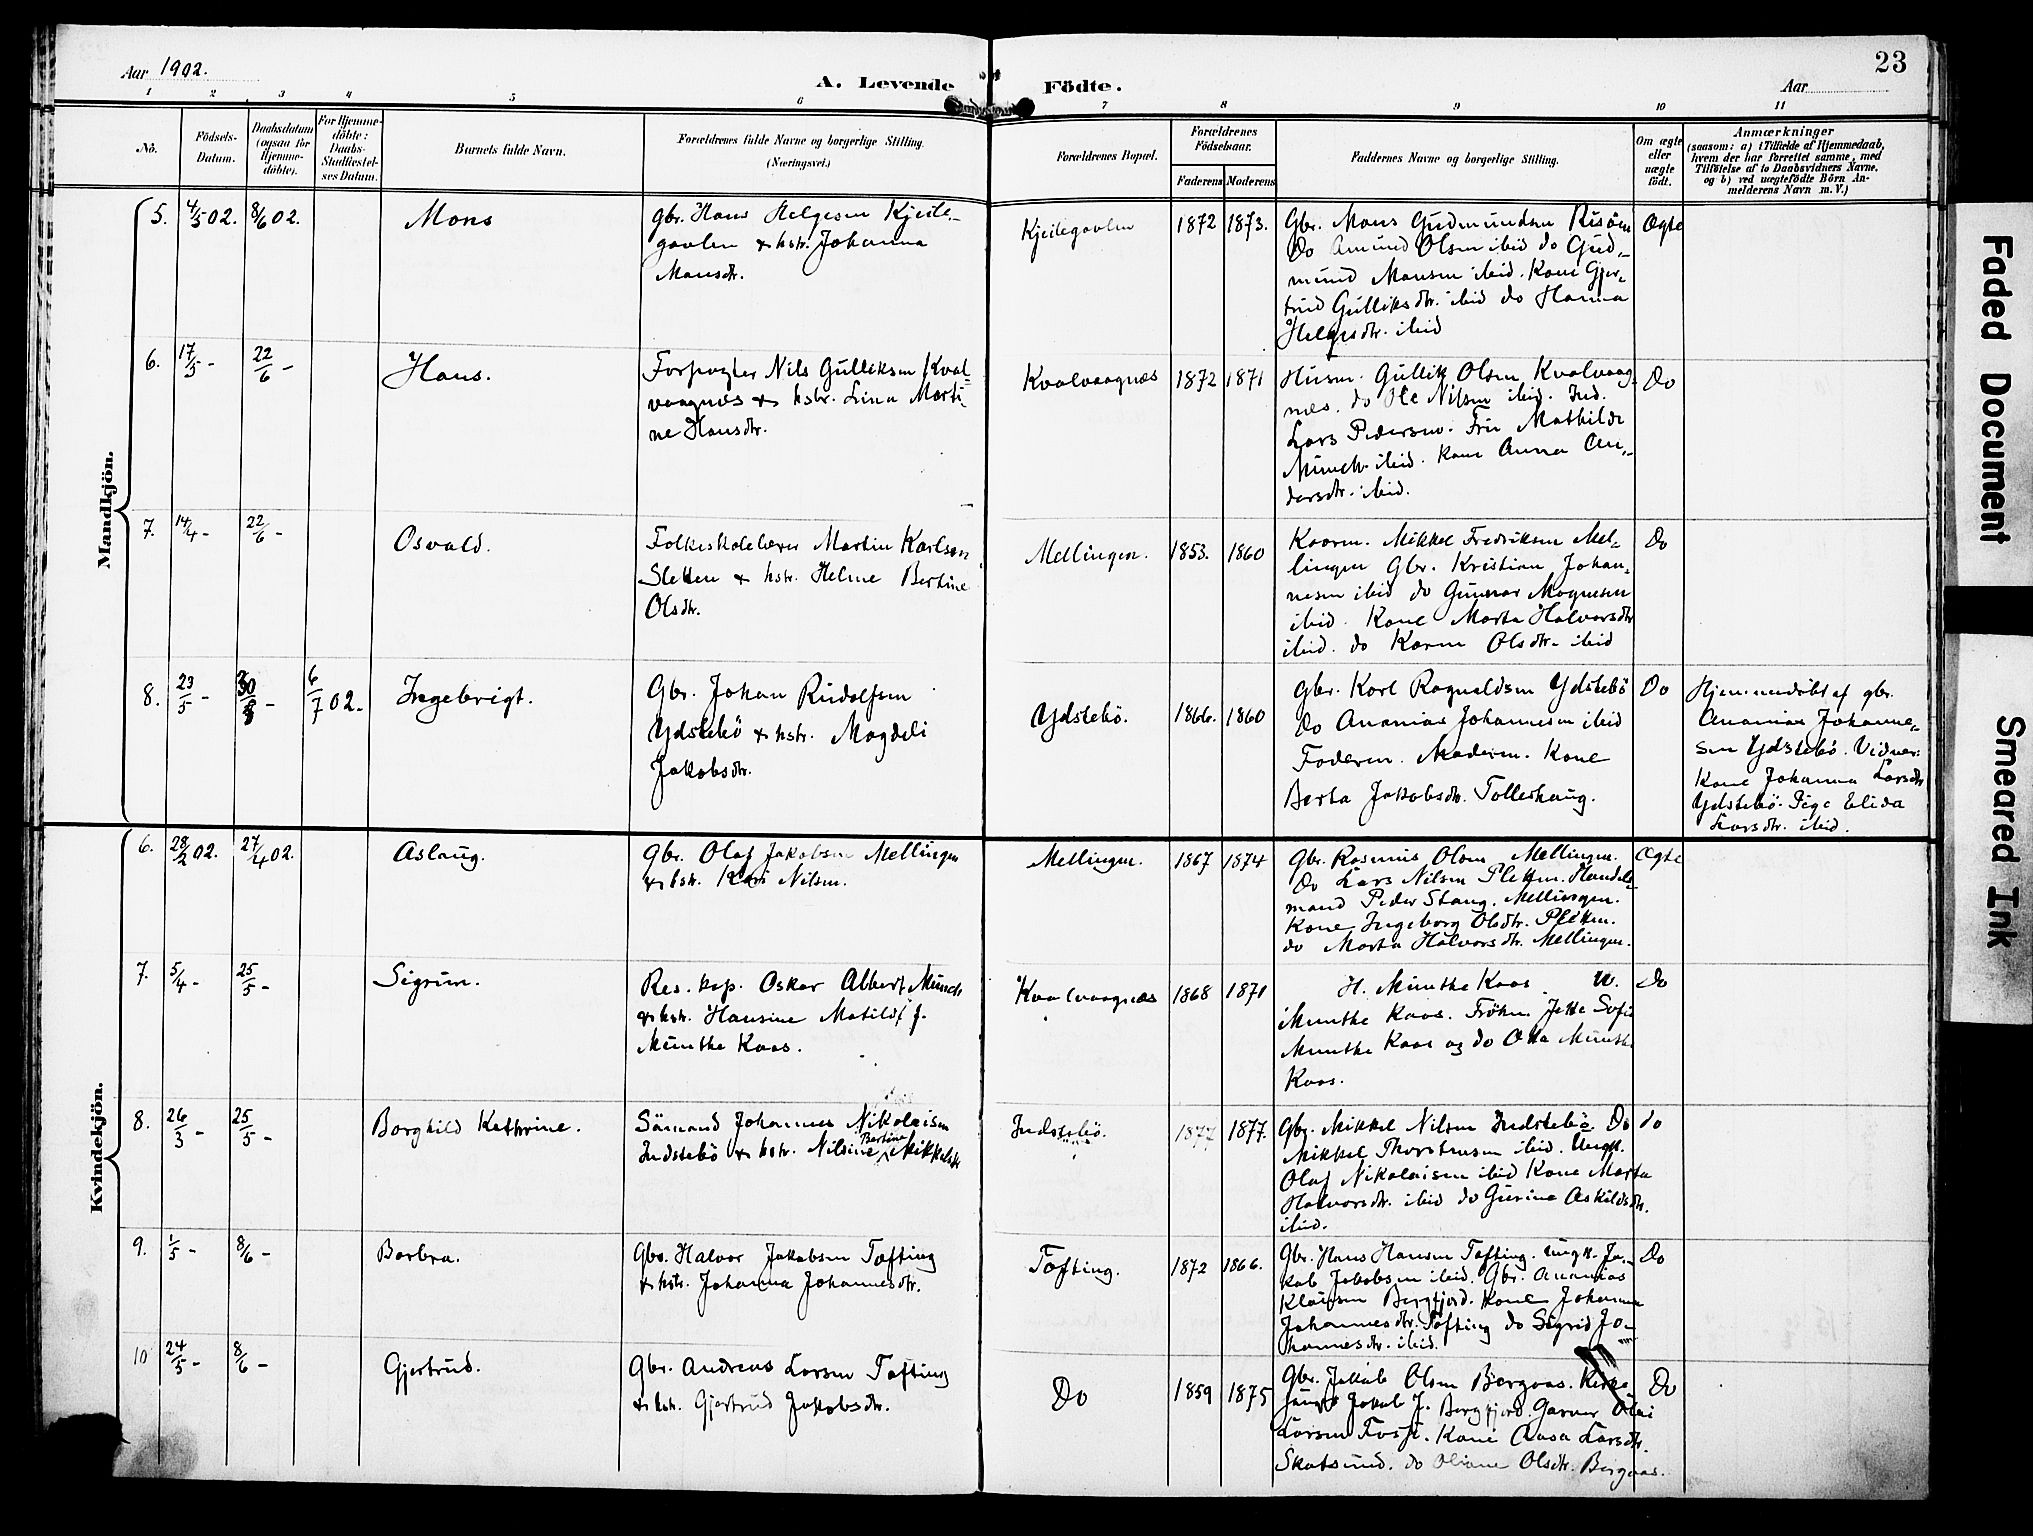 Aar 1902.
A. Levende
Fødte.
Aar
23
1 2 3 4 5 6 7 8 9 10 11
No.
Fødsels-
Datum.
Daabsdatum
(ogsaa for
Hjemme-
døbte).
For Hjemme-
døbte:
Daabs-
Stadfæstel-
ses Datum.
Barnets fulde Navn.
Forældrenes fulde Navne og borgerlige Stilling.
(Næringsvei.)
Forældrenes Bopæl.
Forældrenes
Fødselsaar.
Faderens Moderens
Faddernes Navne og borgerlige Stilling.
Om ægte
eller
uægte
født.
Anmærkninger
(saasom: a) i Tilfælde af Hjemmedaab,
hvem der har forrettet samme, med
Tilføielse af to Daabsvidners Navne,
og b) ved uægtefødte Børn An-
melderens Navn m. V.)
Mandkjøn.
5. 4/5 02. 8/6 02.
Mons
Gbr. Hans Helgesen Kjeile-
gavlen & hstr. Johanna
Monsdtr.
Kjeilegavlen
1872 1873.
Gbr. Mons Gudmundsen Risøen
Do Amund Olsen ibid do Gud-
mund Monsen ibid. Kone Gjer-
trud Gulliksdtr. ibid do Hanna
Helgesdtr. ibid
Ægte
6. 17/5 - 22/6 -
Hans.
Forpagter Nils Gulliksen Kval-
vaagnes & hstr. Lina Marti-
ne Hansdtr.
Kvalvaagnæs
1872 1871
Husm. Gullik Olsen Kvalvaag-
nes. do Ole Nilsen ibid. Ind.
Lars Pedersen. Fru Mathilde
Münch ibid. Kone Anna An-
dersdtr. ibid.
Do
7. 14/4 - 22/6 -
Osvald.
Folkeskolelærer Martin Karlsen
Sletten & hstr. Helene Bertine
Olsdtr.
Mellingen.
1853. 1860
Kaarm. Mikkel Fredriksen Mel-
lingen Gbr. Kristian Johan-
nesen ibid do Gunnar Mognesen
ibid. Kone Marta Halvorsdtr
ibid. do Karen Olsdtr. ibid
Do
8. 23/5 - 30/ - 6/7 02.
Ingebrigt.
Gbr. Johan Rudolfsen
Ydstebø & hstr. Magdeli
Jakobsdtr.
Ydstebø.
1866. 1860
Gbr. Karl Ragnaldsen Ydstebø
Do Ananias Johannesen ibid
Faderen. Moderen. Kone
Berta Jakobsdtr. Tolleshaug.
Do
Hjemmedøbt af gbr.
Ananias Johanne-
sen Ydstebø. Vidner:
Kone Johanna Larsdtr
Ydstebø. Pige Elida
Larsdtr. ibid.
Kvindekjøn.
6. 28/2 02. 27/4 02.
Aslaug.
Gbr. Olaf Jakobsen Mellingen
& hstr. Kari Nilsen.
Mellingen.
1867 1874
Gbr. Rasmus Olsen Mellingen.
Do Lars Nilsen Pletten. Handels-
mand Peder Stang. Mellingen.
Kone Ingeborg Olsdtr. Pletten.
do Marta Halvorsdtr. Mellingen.
Ægte
7. 5/4 - 25/5 -
Sigrun.
Res. kap. Oskar Albert Münch
& hstr. Hansine Matilde f.
Munthe Kaas.
Kvalvaagnæs
1868 1871
H. Munthe Kaas. W.
Munthe Kaas. Frøkn. Jette Sofie
Munthe Kaas og do Otta Munthe
Kaas.
Do
8. 26/3 - 25/5 -
Borghild Kathrine.
Sømand Johannes Nikolaisen
Indstebø & hstr. Nilsine Bertine Mikkelsdtr
Indstebø.
1877 1877.
Gbr. Mikkel Nilsen Indstebø Do
Mikkel Thorstensen ibid. Ungk.
Olaf Nikolaisen ibid Kone Marta
Halvorsdtr. ibid do Gurine Askildsdtr.
ibid.
do
9. 1/5 - 8/6 -
Barbra.
Gbr. Halvor Jakobsen Tofting
& hstr. Johanna Johannesdtr.
Tofting.
1872 1866.
Gbr. Hans Hansen Tofting. Ungk. Ja-
kob Jakobsen ibid. Gbr. Ananias
Klausen Bergfjord. Kone Johanna
Johannesdtr. Tofting do Sigrid Jo-
hannesdtr. ibid.
Do
10 24/5 - 8/6 -
Gjertrud.
Gbr. Andreas Larsen Tofting
& hstr. Gjertrud Jakobsdtr.
Do
1859 1875
Gbr. Jakob Olsen Bergaas.
Jakob J. Bergfjord. Garver
Larsen Fosje. Kone Aasa Larsdtr.
Skotsund. do Oliane Olsdtr. Bergaas.
Do
Faded Document
Smeared Ink